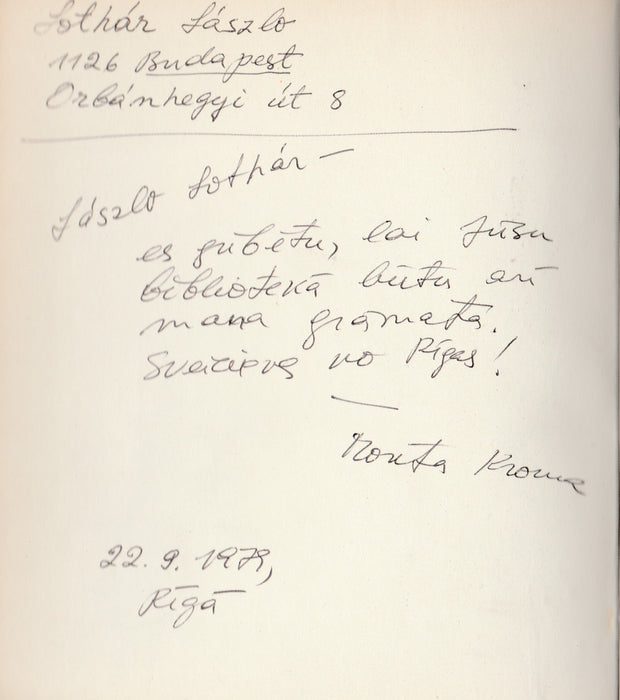 Lothár László
1126 Budapest
Orbánhegyi út 8
László Lothár –
es gribētu, lai Jūsu
bibliotekā būtu arī
mana grāmata.
Sveiciens no Rīgas!
Monta Kroma
22. 9. 1979,
Rīgā